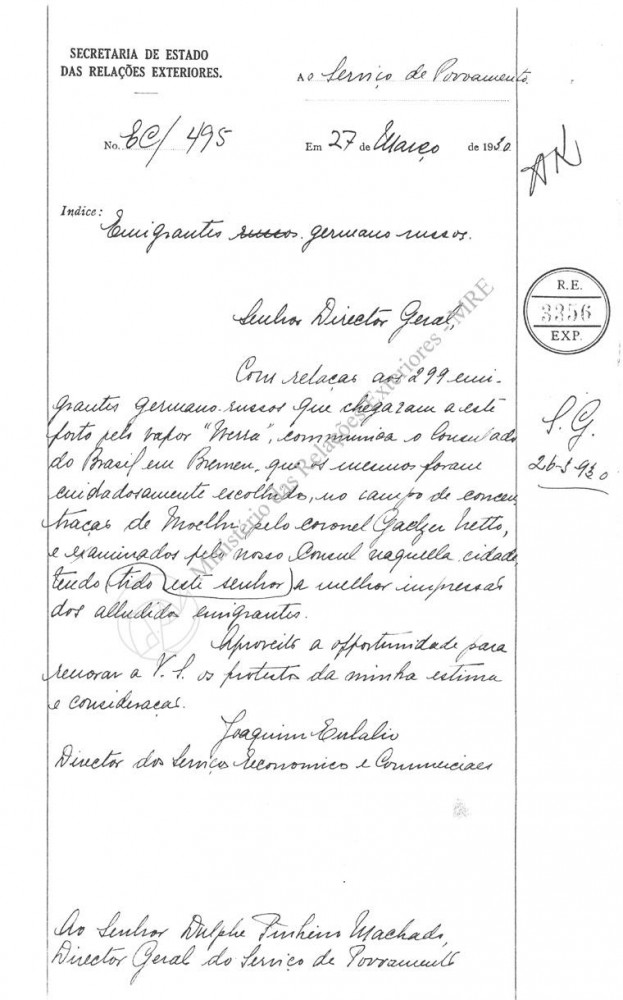 SECRETARIA DE ESTADO
DAS RELAÇÕES EXTERIORES.
Ao Serviço de Povoamento.
No. EC/495
Em 27 de Março de 1930
Indice:
Emigrantes russos germano russos.
R.E.
3356
EXP.
Senhor Director Geral,
Com relação aos 299 emi-
grantes germano-russos que chegaram a este
porto pelo vapor "Werra", communica o Consulado
do Brasil em Bremen, que os mesmos foram
cuidadosamente escolhidos, no campo de concen
tração de Moelln, pelo coronel Gaelzer Netto,
e examinados pelo nosso Consul naquella cidade,
tendo tido este senhor a melhor impressão
dos alludidos emigrantes.
Aproveito a opportunidade para
renovar a V. S. os protestos da minha estima
e consideração.
Joaquim Eulalio
Director dos Serviços Economicos e Commerciaes
S. G.
26-3-930
Ao Senhor Dulphe Pinheiro Machado,
Director Geral do Serviço de Povoamento
Ministério das Relações Exteriores - MRE